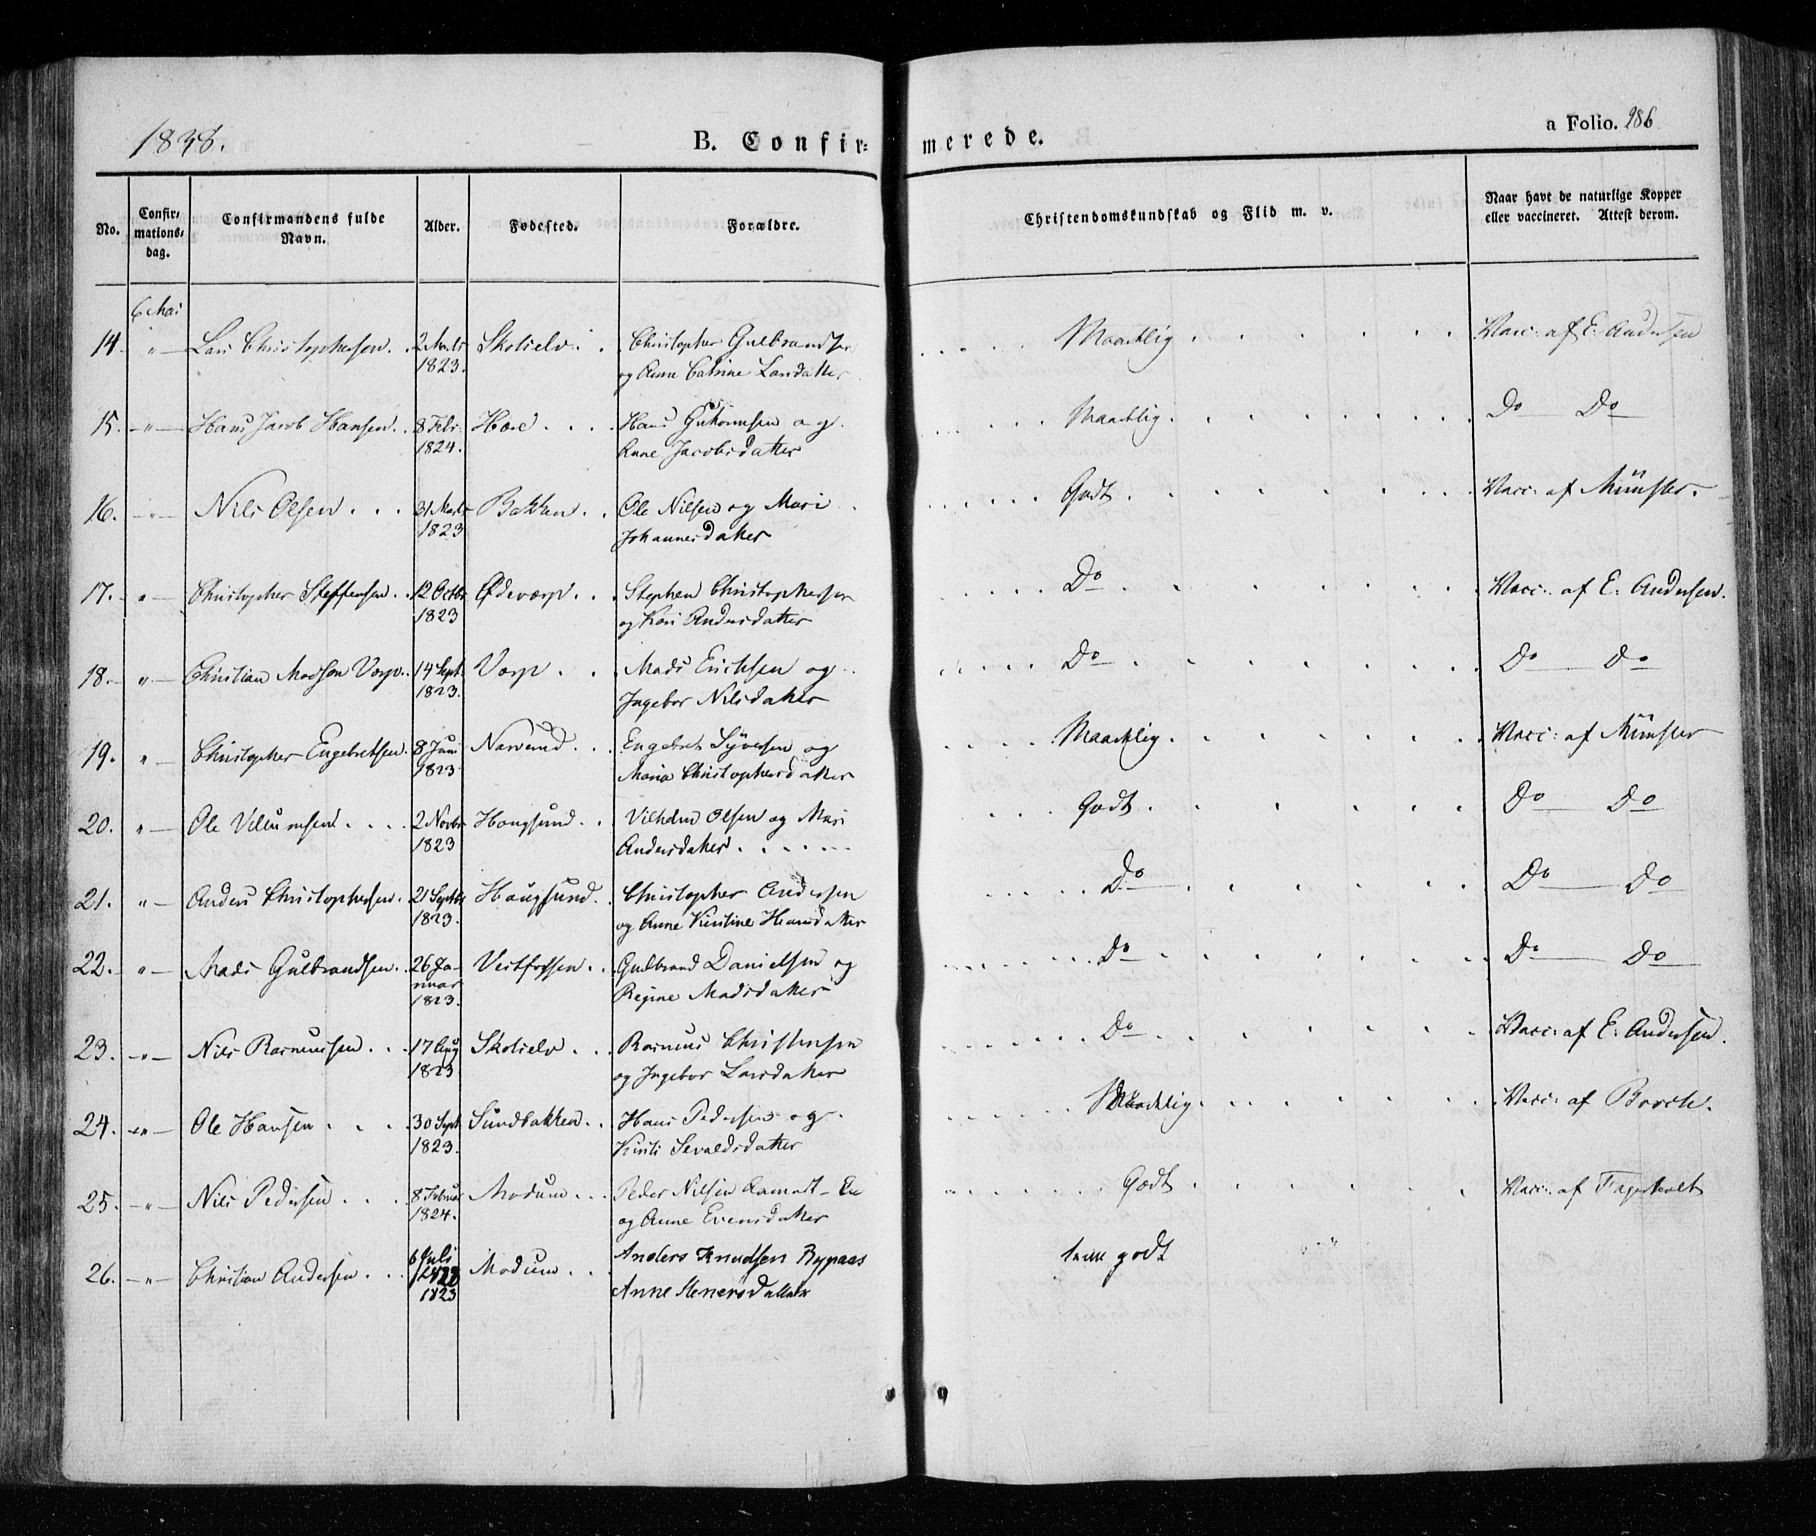 1838.
B. Confirmerede.
a Folio. 286
No.
Confirmationsdag.
Confirmandens fulde Navn.
Alder.
Fødested.
Forældre.
Christendomskundskab og Flid m. v.
Naar havt de naturlige Kopper eller vaccineret. Attest derom.
6 Mai
14. " Lars Christophersen 2 Martz 1823. Skotselv Christopher Gulbrandsen Maadelig Vacc: af E. Andersen
og Anne Catrine Larsdatter
15. " Hans Jacob Hansen 8 Febr. 1824. Hære Hans Guttormsen og Maadelig Do Do
Anne Jacobsdatter
16. " Nils Olsen 31 Marts 1823 Bakken Ole Nilsen og Mari Godt Vacc: af Münster.
Johannesdatter
17. " Christopher Steffensen 12 Octbr 1823 Ødeværp Stephen Christophersen Do Vacc: af E. Andersen.
og Kari Andersdatter
18. " Christian Madsen Vorp 14 Sept. 1823. Vorp Mads Erichsen og Do Do Do
Ingebor Nilsdatter
19. " Christopher Engebretsen 8 Juni 1823. Narverud Engebret Syversen og Maadelig Vacc: af Münster
Maria Christophersdatter
20. " Ole Villumsen 2 Novbr 1823 Hougsund Vilhelm Olsen og Mari Godt Do Do
Andersdatter
21. " Anders Christophersen 21 Septbr 1823. Hougsund Christopher Andersen Do Do Do
og Anne Kirstine Hansdatter
22. " Mads Gulbrandsen 26 Januar 1823. Vestfossen Gulbrand Danielsen og Do Do Do
Regine Madsdatter
23. " Nils Rasmussen 17 Aug 1823 Skotselv Rasmus Christensen Do Vacc: af E. Andersen.
og Ingebor Larsdatter
24. " Ole Hansen 30 Sept 1823. Sundbakken Hans Pedersen og Maadelig Vacc: af Borch.
Kirsti Sevaldsdatter
25. " Nils Pedersen 8 Februar 1824. Modum Peder Nilsen Aamodt-Eie Godt Vacc: af Fagerholt
og Anne Evensdatter
26. " Christian Andersen 6 Juli 1823 Modum Anders Knudsen Bypaas godt
Anne Stenersdatter